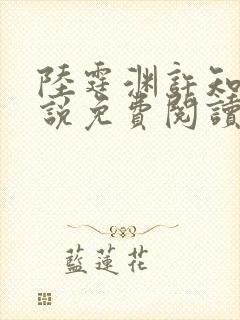 陸霆淵許知
說免費閱讀
藍蓮花